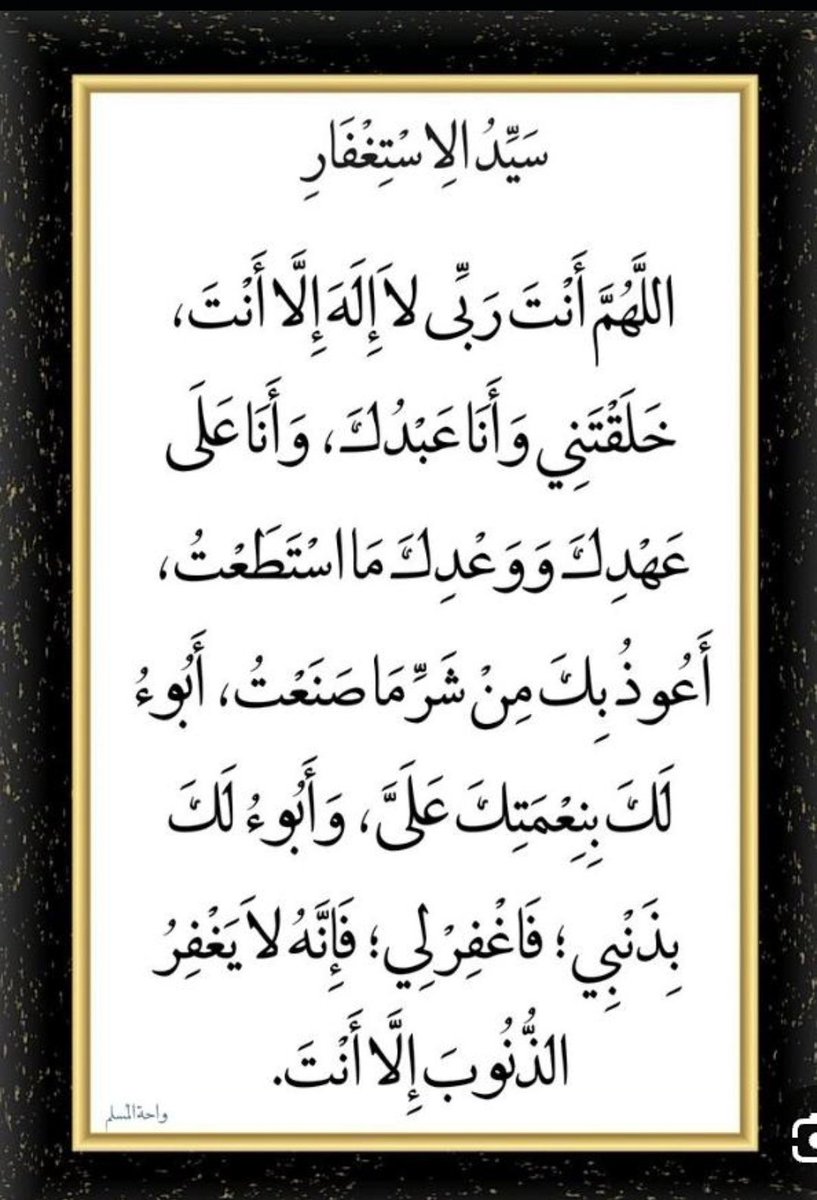 سَيِّدُ الِاسْتِغْفَارِ
اللَّهُمَّ أَنْتَ رَبِّى لاَ إِلَهَ إِلَّا أَنْتَ،
خَلَقْتَنِي وَأَنَا عَبْدُكَ، وَأَنَا عَلَى
عَهْدِكَ وَوَعْدِكَ مَا اسْتَطَعْتُ،
أَعُوذُ بِكَ مِنْ شَرِّ مَا صَنَعْتُ، أَبُوءُ
لَكَ بِنِعْمَتِكَ عَلَىَّ، وَأَبُوءُ لَكَ
بِذَنْبِي؛ فَاغْفِرْ لِي؛ فَإِنَّهُ لاَ يَغْفِرُ
الذُّنُوبَ إِلَّا أَنْتَ.
واحة المسلم